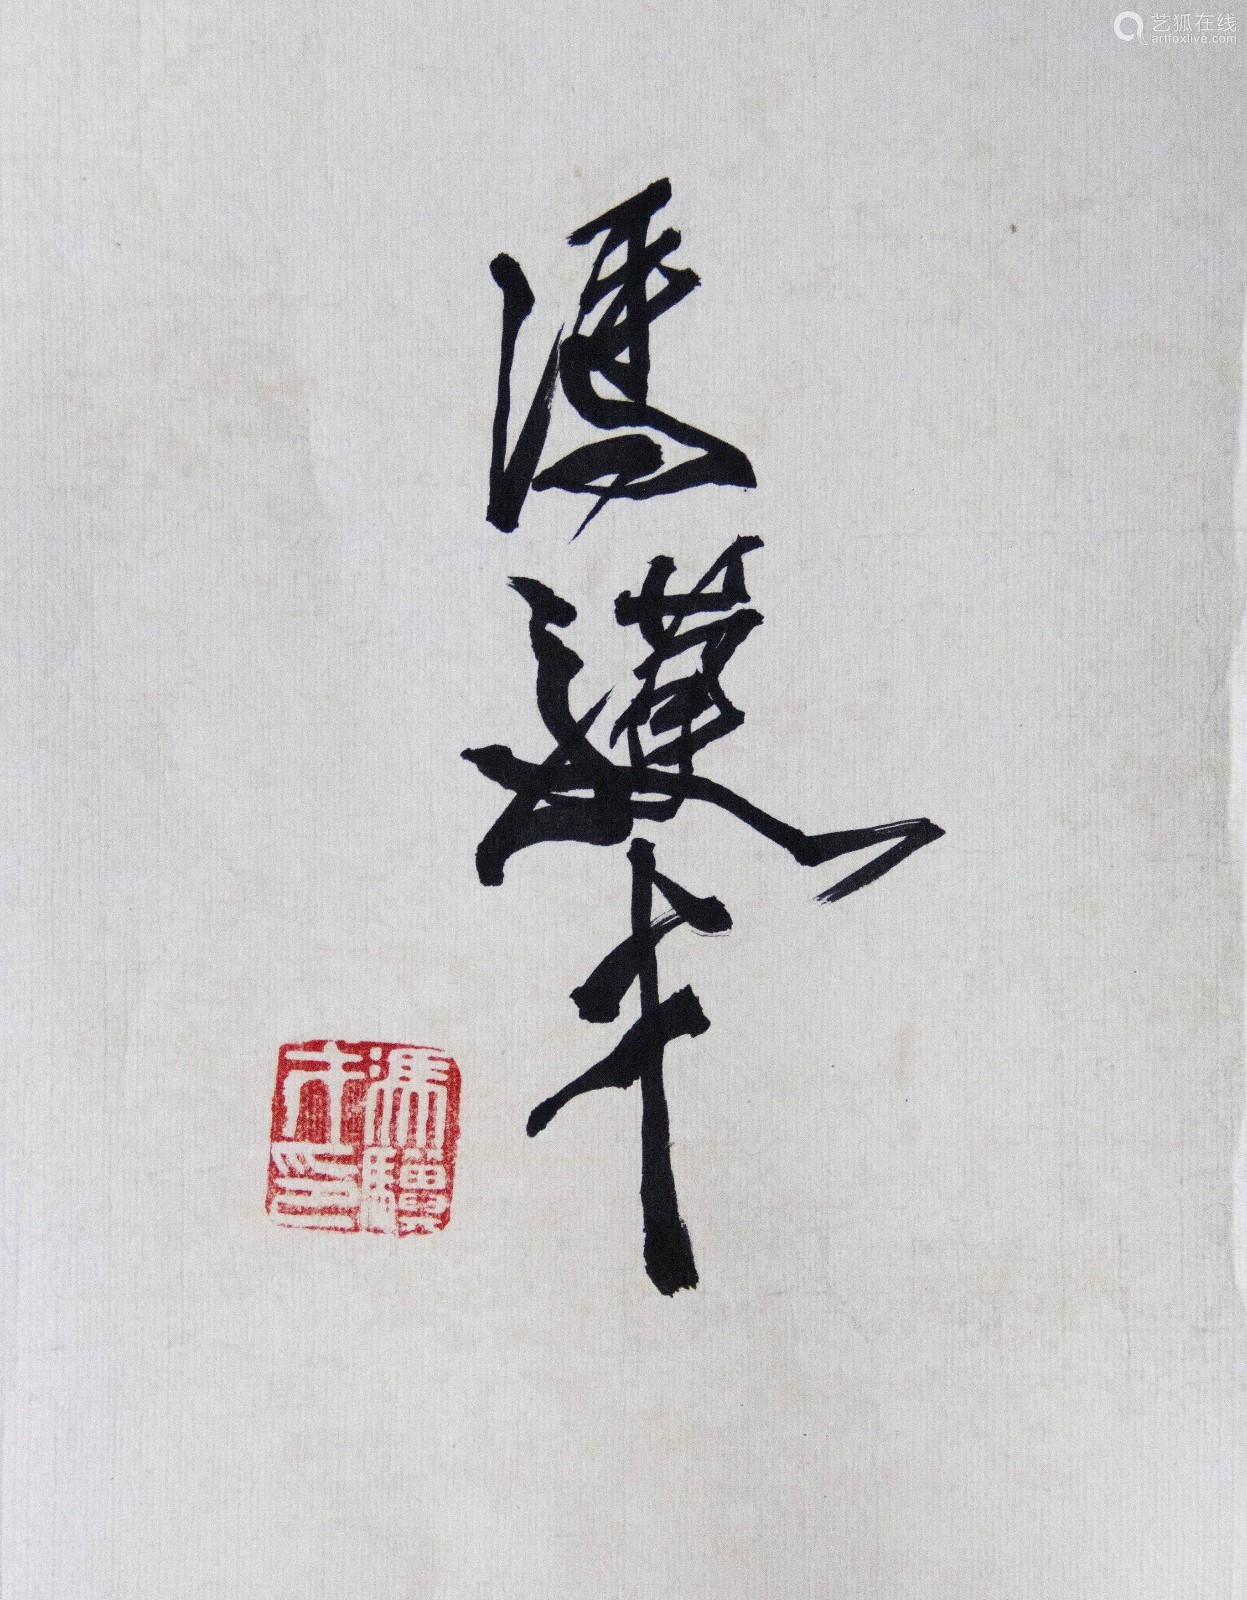 艺狐在线
artfoxlive.com
馮驥才
馮驥才印